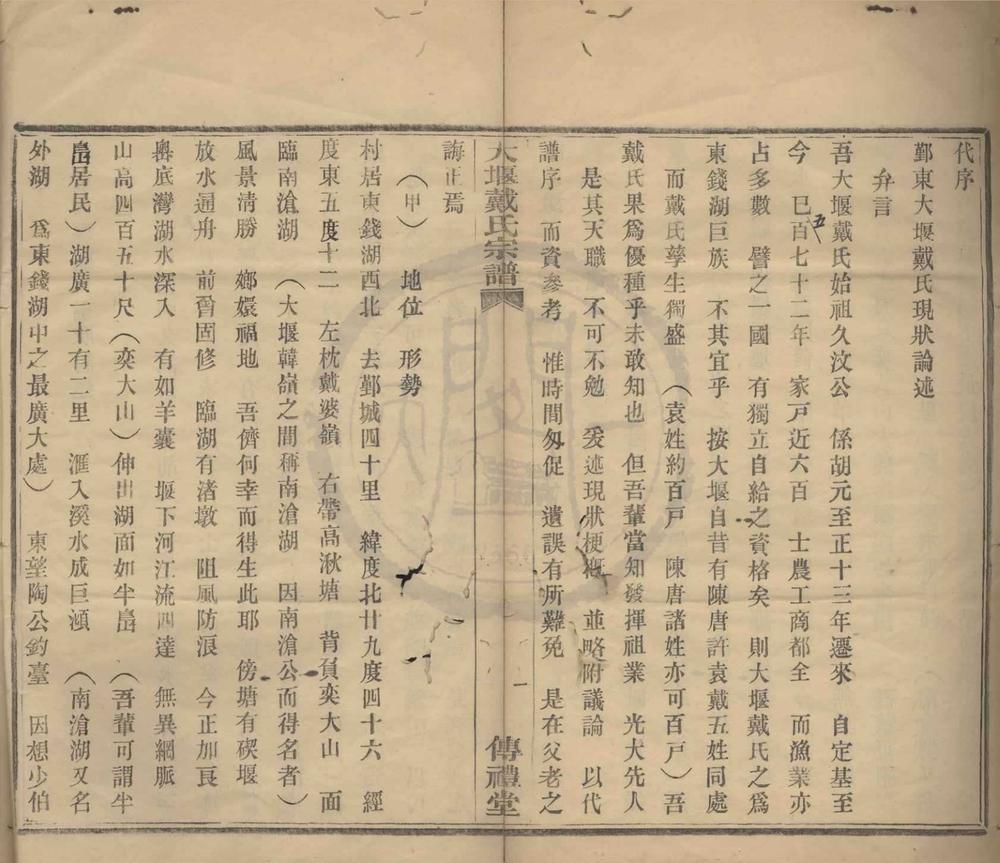 代序
鄞東大堰戴氏現狀論述
弁言
吾大堰戴氏始祖久汶公　係胡元至正十三年遷來　自定基至
今　巳五百七十二年　家戸近六百　士農工商都全　而漁業亦
占多數　譬之一國　有獨立自給之資格矣　則大堰戴氏之爲
東錢湖巨族　不其宜乎　按大堰自昔有陳唐許袁戴五姓同處
而戴氏孳生獨盛　（袁姓約百戸　陳唐諸姓亦可百戸）吾
戴氏果爲優種乎未敢知也　但吾輩當知發揮祖業　光大先人
是其天職　不可不勉　爰述現狀梗概　並略附議論　以代
譜序　而資參考　惟時間匆促　遺誤有所難免　是在父老之
大堰戴氏宗譜　一　傳禮堂
誨正焉
（甲）　地位　形勢
村居東錢湖西北　去鄞城四十里　緯度北廿九度四十六　經
度東五度十二　左枕戴婆嶺　右帶高湫塘　背負奕大山　面
臨南滄湖　（大堰韓嶺之間稱南滄湖　因南滄公而得名者）
風景清勝　嫏嬛福地　吾儕何幸而得生此耶　傍塘有碶堰
放水通舟　前曾固修　臨湖有渚墩　阻風防浪　今正加良
嶴底灣湖水深入　有如羊囊　堰下河江流四達　無異網脈
山高四百五十尺（奕大山）伸出湖面如半島（吾輩可謂半
島居民）湖廣一十有二里　滙入溪水成巨澒　（南滄湖又名
外湖　爲東錢湖中之最廣大處）　東望陶公釣臺　因想少伯